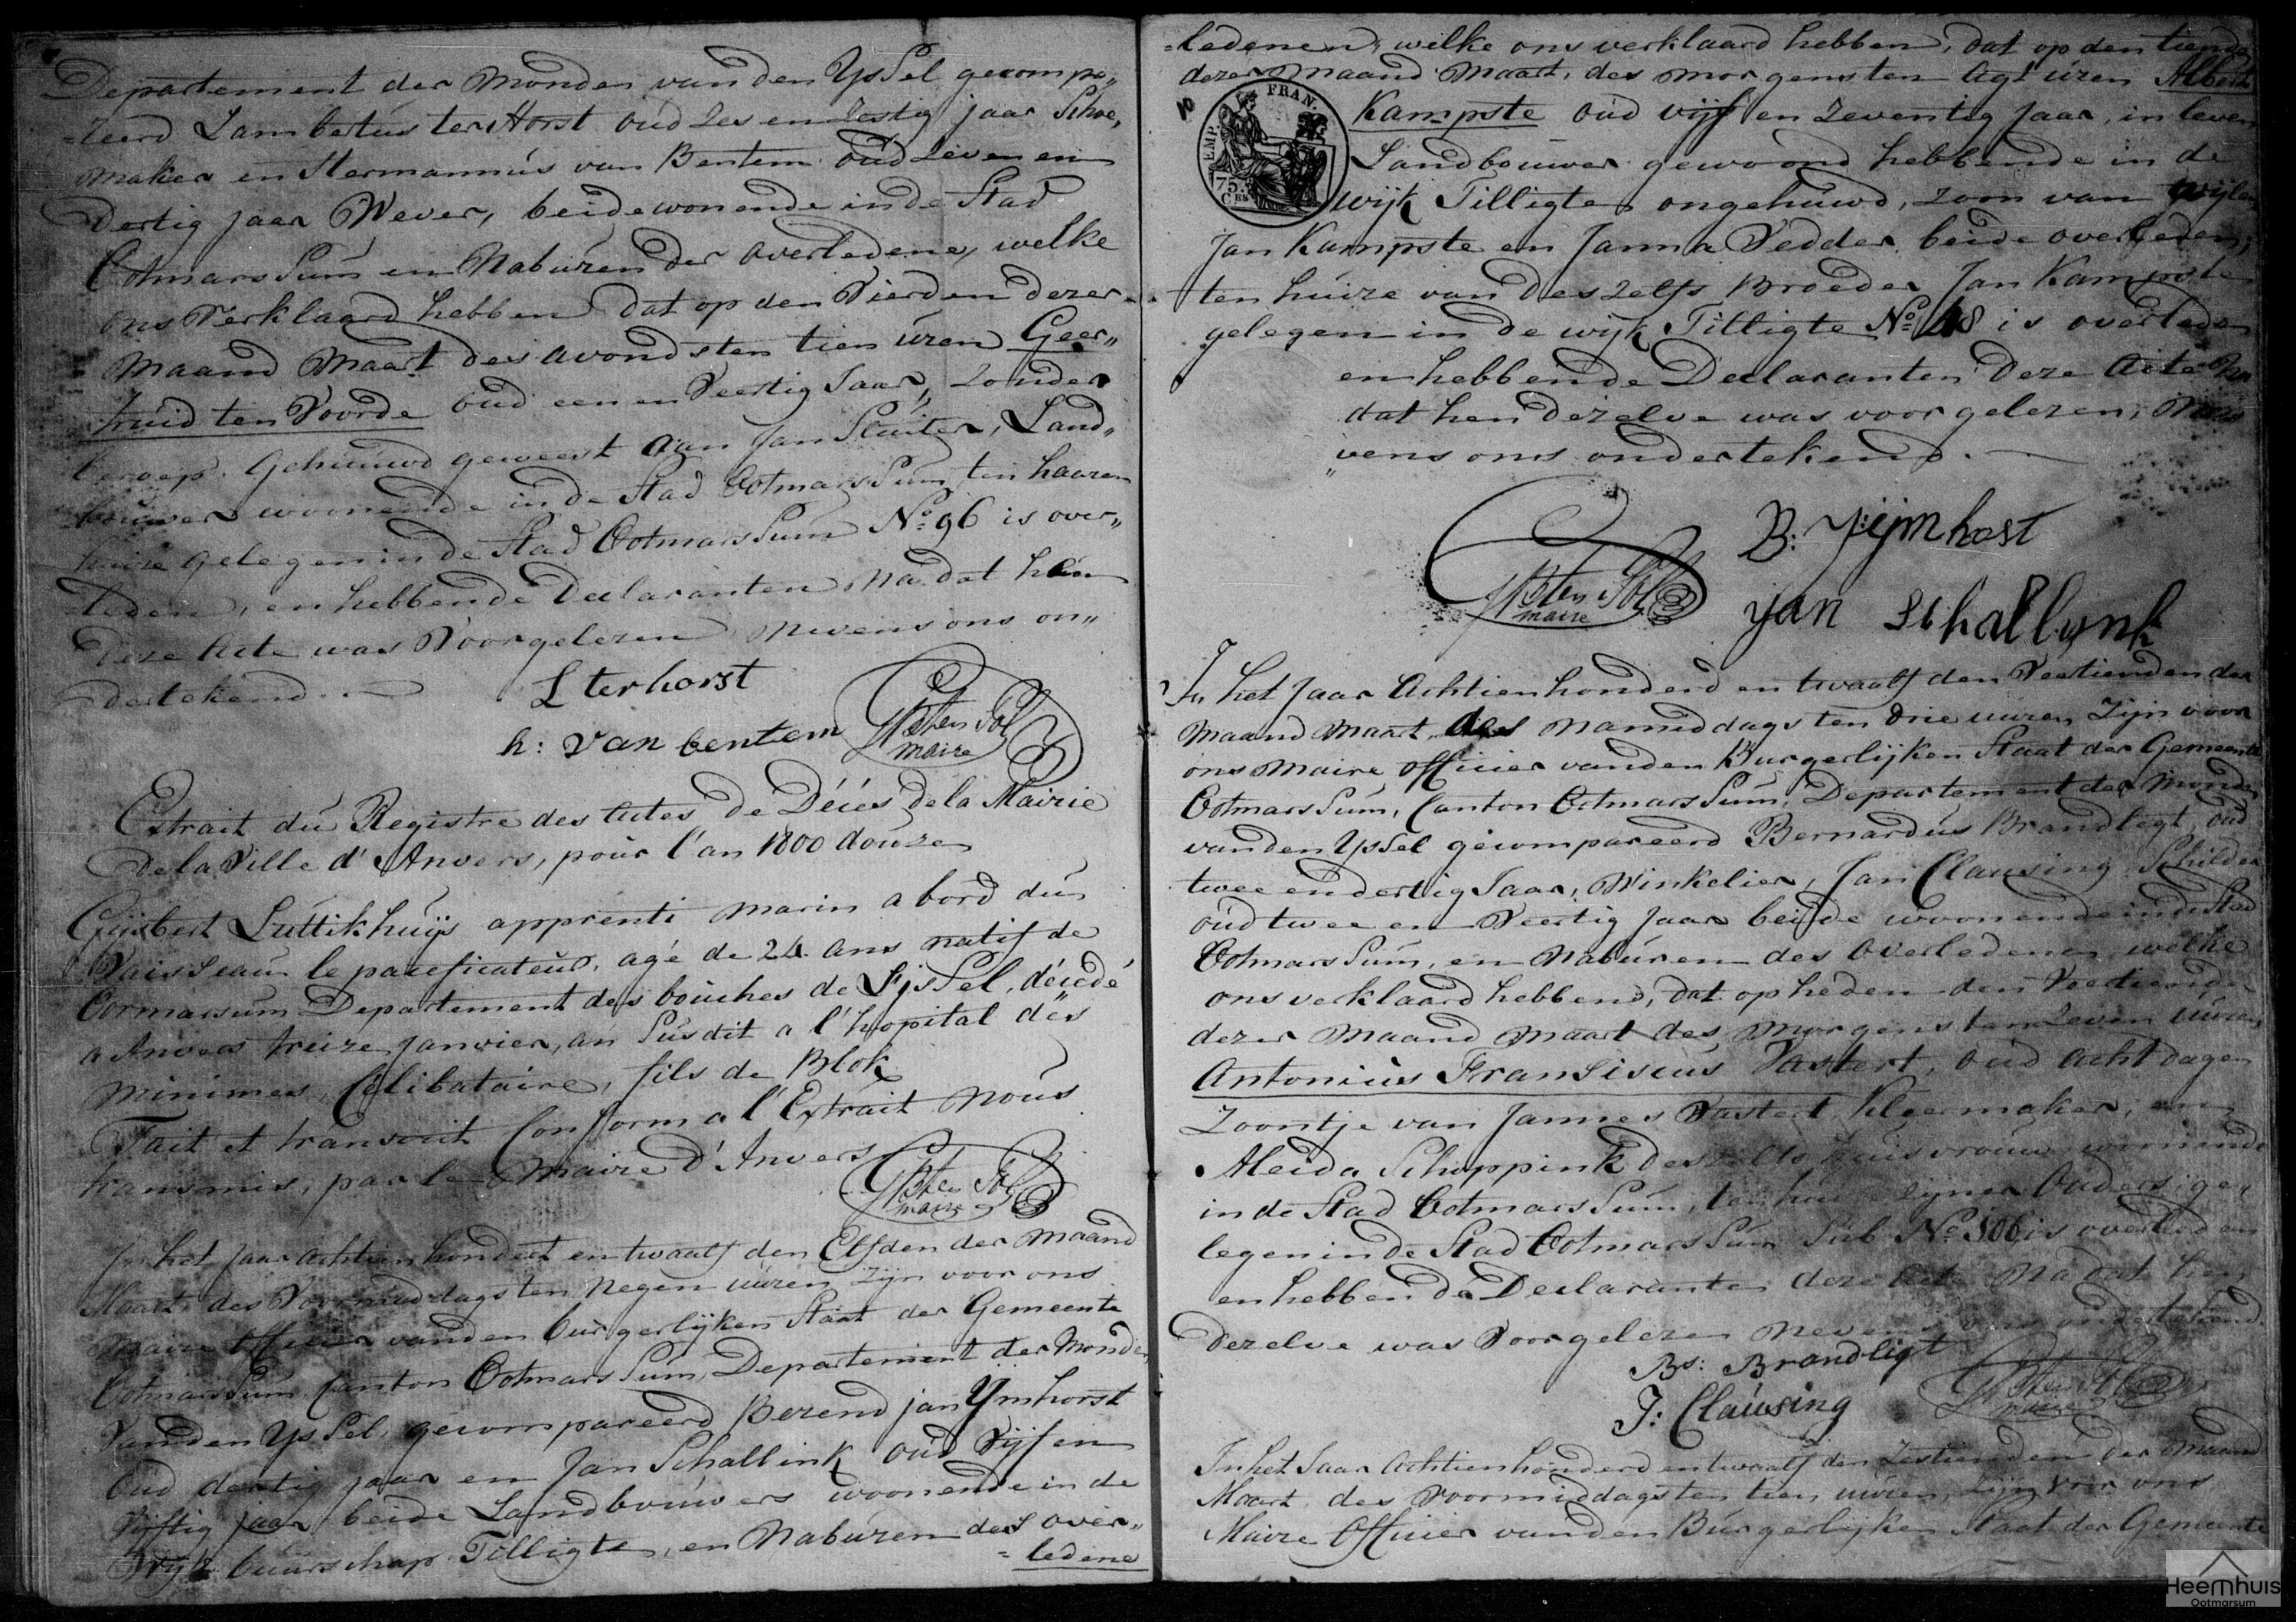 Departement der Monden van den YsSel gecompa„
=reerd Lambertus ter Horst oud Zes en Zestig jaar Schoe„
maker en Hermannus van Bentem oud Zeven en
dertig jaar Wever, beide wonende in de Stad
OotmarsSum en Naburen der Overledene, welke
ons Verklaard hebben dat op den Vierden dezer
Maand Maart des avonds ten tien uren Geer„
truid ten Voorde oud een en Veertig Jaar, Zonder
beroep. Gehuuwd geweest aan Jan Sluiter, Land„
bouwer woonende in de Stad OotmarsSum ten haaren
huize gelegen in de Stad OotmarsSum No. 96 is over„
=leden, en hebben de Declaranten na dat hen
deze Acte was Voorgelezen nevens ons on„
dertekend.
L ter horst
h: van bentem
ten Pol
maire
Extrait du Registre des Actes de Décés de la Mairie
de la Ville d'Anvers, pour l'an 1800 douze
Gijsbert Luttikhuijs apprenti marin a bord du
Vaisseau le pacificateur, agé de 24 ans natif de
Oormarsum Departement des bouches de l'ijsSel, décédé
a Anvers treize janvier, an Susdit a l'hopital des
minimes, Célibataire, fils de Blok
Fait et transcrit Conform a l'Extrait nous
transmis, par le Maire d'Anvers
ten Pol
maire
In het Jaar achtien hondert en twaalf den Elfden der Maand
Maart des Voormiddags ten Negen uuren Zijn voor ons
Maire Officier van den burgerlijken Staat der Gemeente
OotmarsSum Canton OotmarsSum, Departement der Monden
Van den YsSel, gecompareerd Berend jan Ymhorst
Oud dertig jaar en Jan Schallink oud Vijf en
Vijftig jaar beide Landbouwers woonende in de
Wijk buurschap Tilligte, en Naburen des over„
=ledene
=ledenen, welke ons verklaard hebben, dat op den tiende
dezer Maand Maart, des morgens ten Agt uren Albert
EMP. FRAN.
75
CES
Kampste oud vijf en Zeventig Jaar, in leven
Landbouwer gewoond hebbende in de
wijk Tilligte ongehuwd, zoon van wijlen
Jan Kampste en Janna Vedder beide overleden,
ten huize van deszelfs Broeder Jan Kampste
gelegen in de wijk Tilligte No. 48 is overleden
en hebben de Declaranten deze Acte Na
dat hen dezelve was voorgelezen, Ne
vens ons ondertekend.
B: Yijmhorst
ten Pol
maire
Jan Schallynk
In het Jaar Achtien honderd en twaalf den Veertienden der
Maand Maart des Namiddags ten drie uuren Zijn voor
ons Maire Officier van den Burgerlijken Staat der Gemeente
OotmarsSum, Canton OotmarsSum, Departement der Monden
van den YsSel gecompareerd Bernardus Brandligt, oud
twee en dertig Jaar, Winkelier, Jan Clausing Schilder
oud twee en Veertig Jaar beide woonende in de Stad
OotmarsSum, en Naburen des Overledenen welke
ons verklaard hebben, dat op heden den Veertienden
dezer Maand Maart des Morgens ten Zeven uuren,
Antonius FranSiscus Vastert, oud acht dagen
Zoontje van Jannes Vastert Kleermaker, en
Aleida Schoppink deszelfs huisvrouw woonende
in de Stad OotmarsSum, ten huize zijner Ouders ge„
legen in de Stad OotmarsSum Sub No. 106 is overleden
en hebben de Declaranten deze Acte Na dat hen
dezelve was Voorgelezen Nevens ons ondertekend
Bs: Brandligt
J: Clausing
ten Pol
maire
In het Jaar Achtien honderd en twaalf den Zestienden der Maand
Maart, des Voormiddags ten tien uuren, Zijn Voor ons
Maire Officier van den Burgerlijken Staat der Gemeente
Heemhuis
Ootmarsum